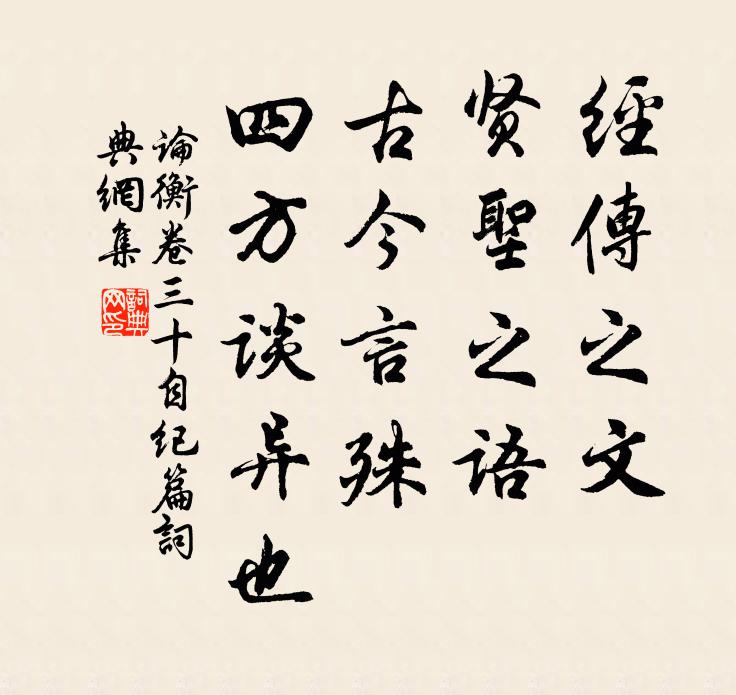 經傳之文
贤聖之语
古今言殊
四方谈异也
論衡卷三十自纪篇詞
典網集
詞典
网印